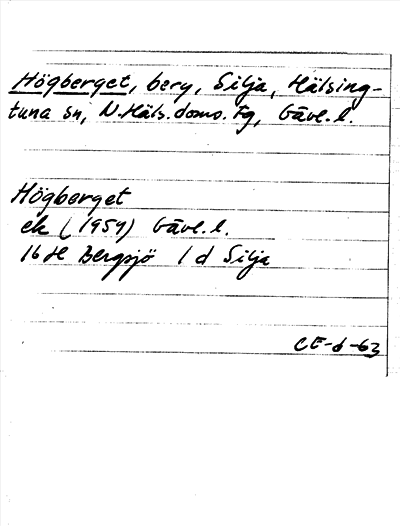 Högberget, berg, Silja, Hälsing-
tuna sn, N. Häls. doms. Fg, Gävl. l.
Högberget
ek (1954) Gävl. l.
16 H Bergsjö 1 d Silja
CE-6-63